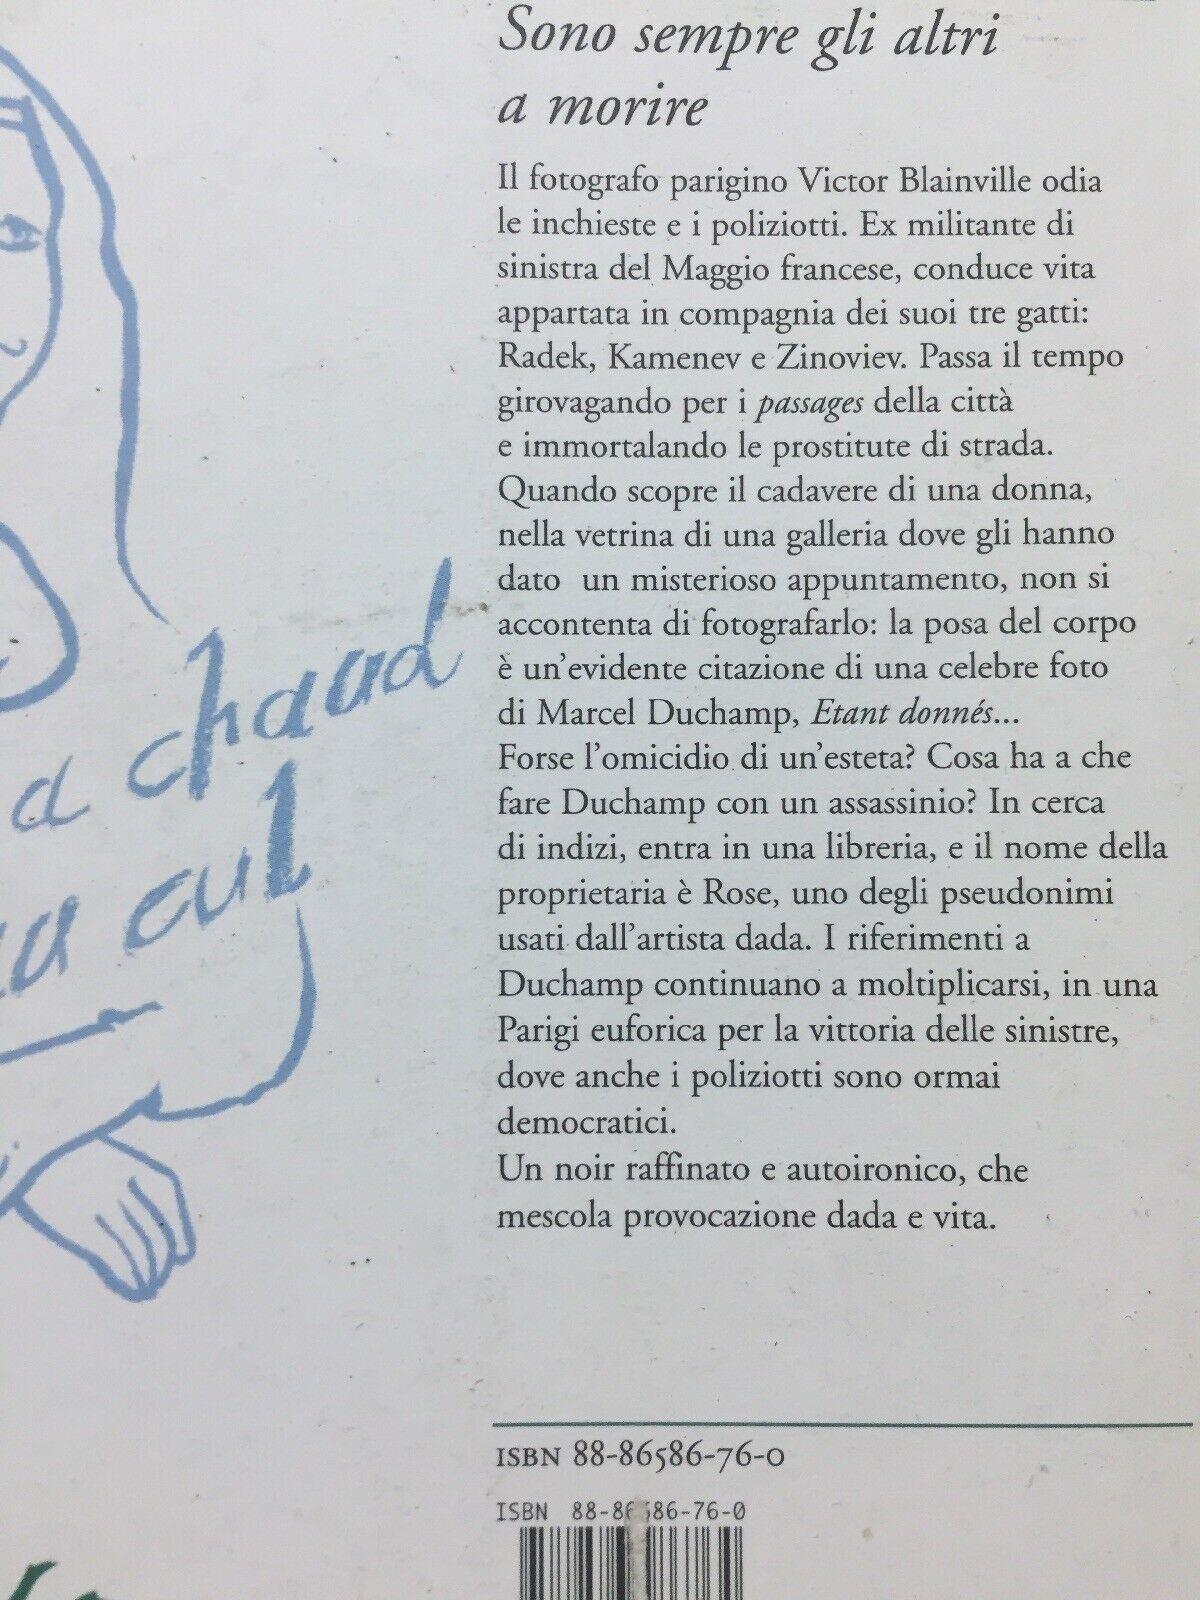 Sono sempre gli altri
a morire
Il fotografo parigino Victor Blainville odia
le inchieste e i poliziotti. Ex militante di
sinistra del Maggio francese, conduce vita
appartata in compagnia dei suoi tre gatti:
Radek, Kamenev e Zinoviev. Passa il tempo
girovagando per i passages della città
e immortalando le prostitute di strada.
Quando scopre il cadavere di una donna,
nella vetrina di una galleria dove gli hanno
dato un misterioso appuntamento, non si
accontenta di fotografarlo: la posa del corpo
è un'evidente citazione di una celebre foto
di Marcel Duchamp, Etant donnés...
Forse l'omicidio di un'esteta? Cosa ha a che
fare Duchamp con un assassinio? In cerca
di indizi, entra in una libreria, e il nome della
proprietaria è Rose, uno degli pseudonimi
usati dall'artista dada. I riferimenti a
Duchamp continuano a moltiplicarsi, in una
Parigi euforica per la vittoria delle sinistre,
dove anche i poliziotti sono ormai
democratici.
Un noir raffinato e autoironico, che
mescola provocazione dada e vita.
a chaud
cul
ISBN 88-86586-76-0
ISBN 88-86586-76-0